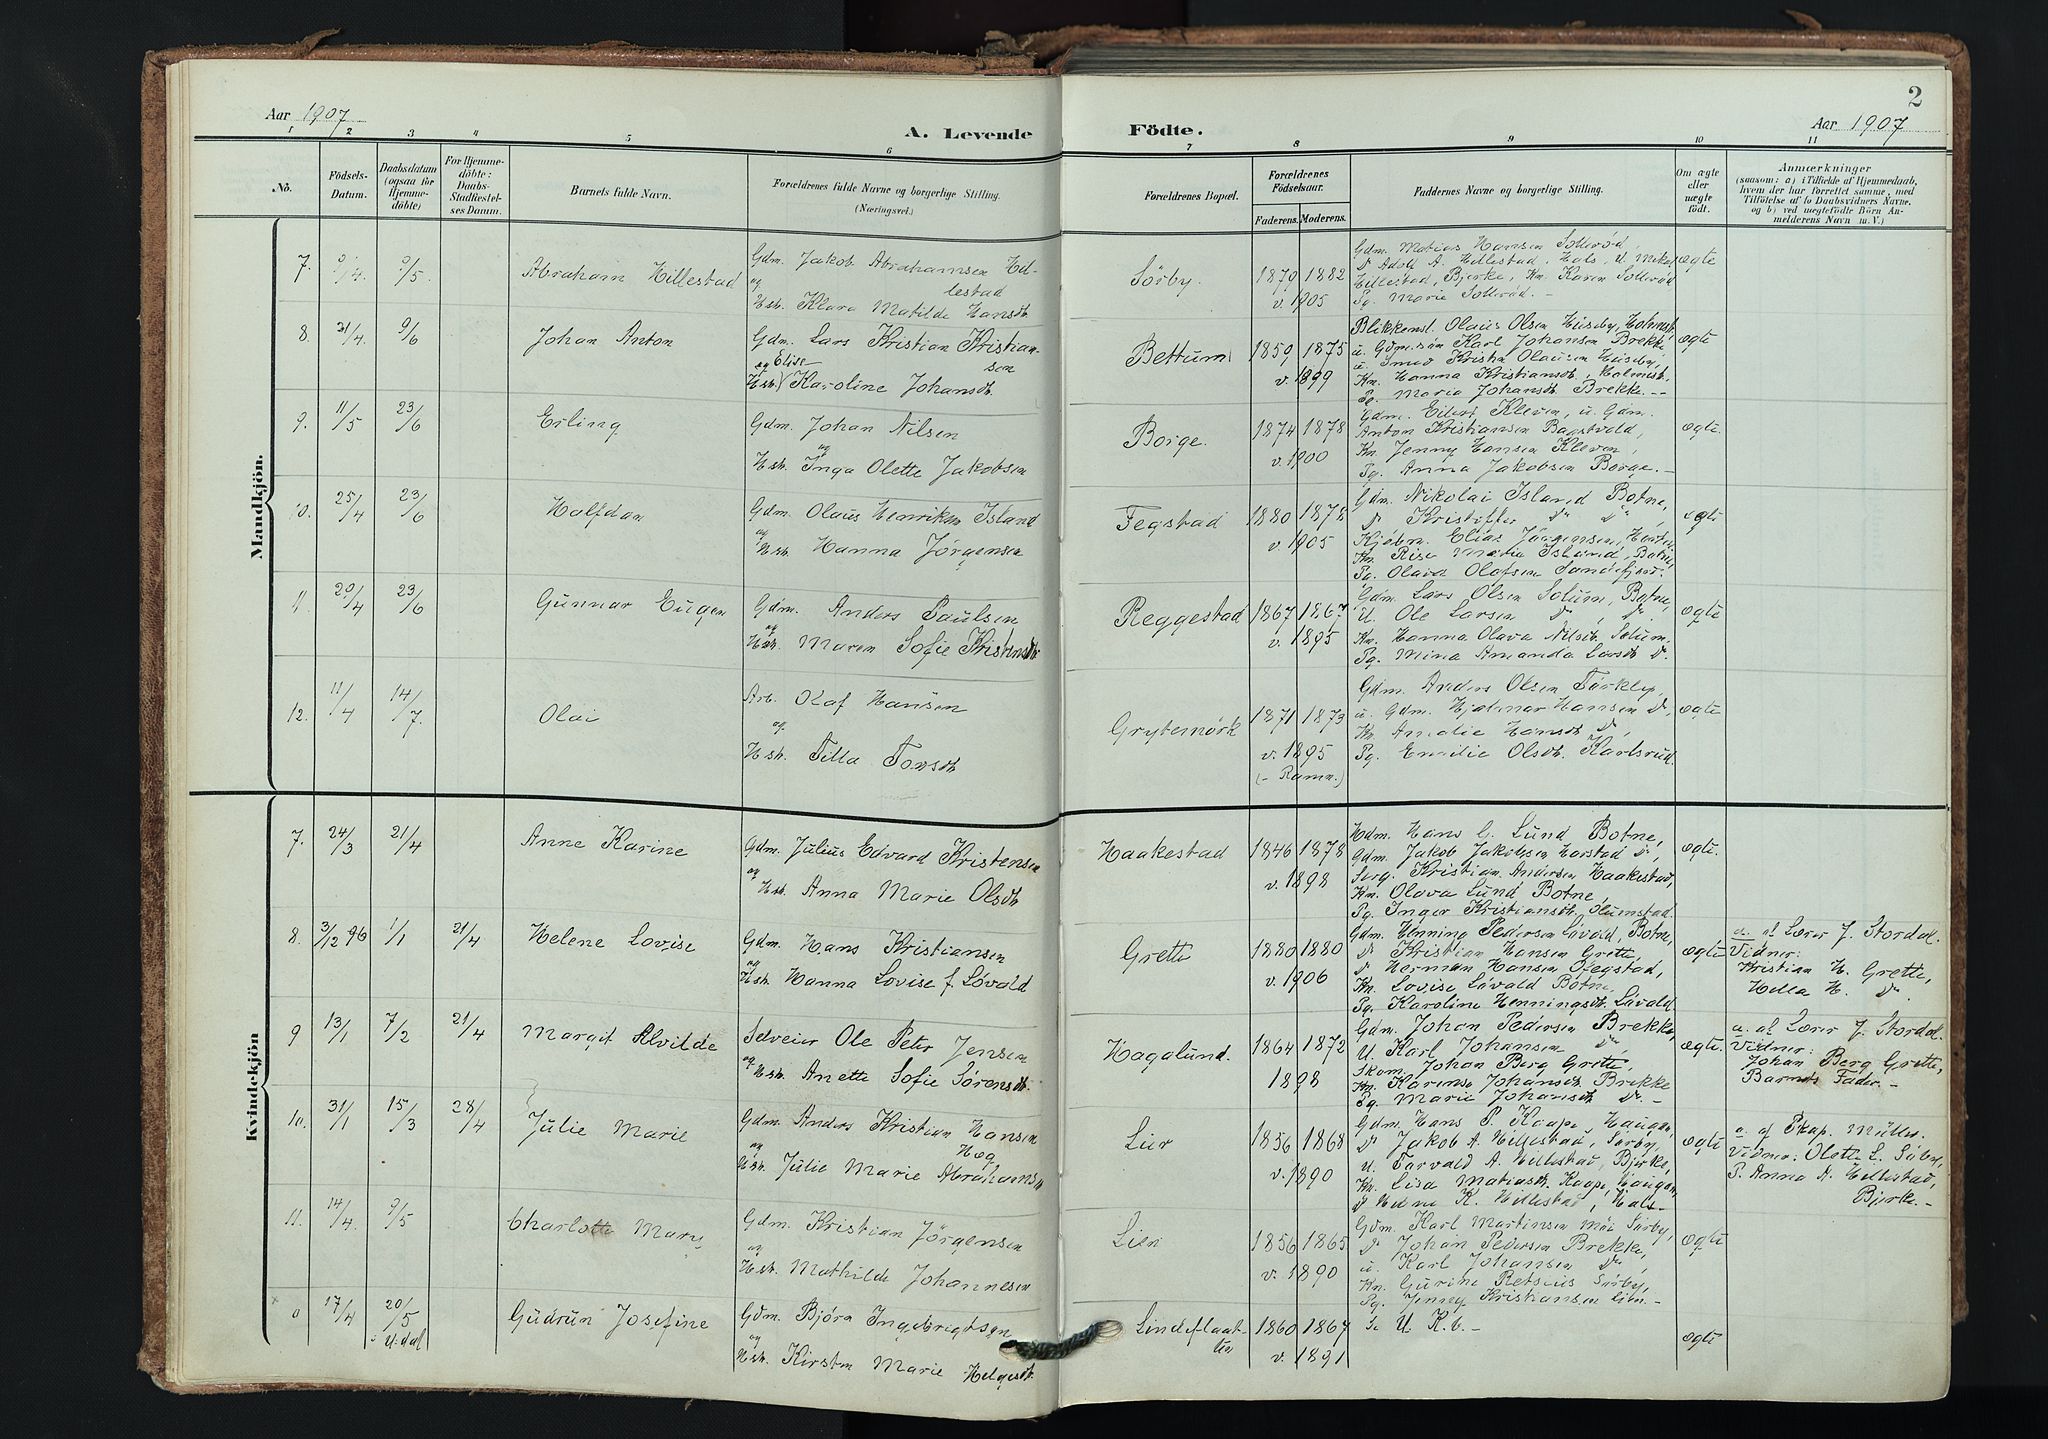 2
Aar 1907
A. Levende Födte.
Aar 1907
1 2 3 4 5 6 7 8 9 10 11
No.
Födsels-Datum.
Daabsdatum (ogsaa for Hjemmedöbte)
For Hjemmedöbte: Daabs-Stadfæstelses Datum.
Barnets fulde Navn.
Forældrenes fulde Navne og borgerlige Stilling.
(Næringsvei.)
Forældrenes Bopæl.
Forældrenes Födselsaar.
Faderens. Moderens.
Faddernes Navne og borgerlige Stilling.
Om ægte eller uægte födt.
Anmærkninger
(saasom: a) i Tilfælde af Hjemmedaab,
hvem der har forrettet samme, med
Tilföielse af to Daabsvidners Navne.
og b) ved uegtefödte Börn An-
melderens Navn m. V.)
Mandkjön.
7. 9/4. 9/5. Abraham Hillestad
Gdm. Jakob Abrahamsen Hil-
lestad
og
Hsk. Klara Matilde Hansdt.
Sørby. 1879 1882
v. 1905
Gdm. Matias Hansen Sollerød,
Dr Adolf A. Hillestad, Hals, U. Mikal
Hillestad, Bjerke, Kn. Karen Sollerød
Pg. Marie Sollerød. —
ægte
8. 21/4. 9/6 Johan Anton
Gdm. Lars Kristian Kristian-
sen
og Elise
Hsk. Karoline Johansdt.
Bettum 1859 1875
v. 1899
Blikkensl. Olaus Olsen Huseby, Holmst.
u. Gdm.søn Karl Johansen Brekke
u. Smed Kristen Olausen Huseby,
Kn. Hanna Kristiansdt., Holmest.
Pg. Maria Johansdt. Brekke. —
ægte
9. 11/5 23/6 Erling
Gdm. Johan Nilsen
og
Hsk. Inga Olette Jakobsen
Borge. 1874 1878
v. 1900
Gdm. Eilert Kleven, u. Gdm.
Anton Kristiansen Bagstvold,
Kn. Jenny Hansen Kleven,
Pg. Anna Jakobsen Borge. —
ægte.
10. 25/4 23/6 Halfdan
Gdm. Olaus Henriksen Island
og
Hsk. Hanna Jørgensen
Fegstad 1880 1878
v. 1905
Gdm. Nikolai Island Botne,
Dr Kristoffer Dr Dr,
Kjøbm. Elias Jørgensen, Horten,
Kn. Rise Marie Island, Botne,
Pg. Olava Olafsen Sandefjord.
ægte
11. 20/4 23/6 Gunnar Eugen
Gdm. Anders Paulsen
og
Hsk. Maren Sofie Kristensdt.
Reggestad 1867 1867
v. 1895
Gdm. Lars Olsen Solum, Botne,
U. Ole Larsen Dr, Dr.
Kn. Hanna Olava Nilsdt. Solum.
Pg. Mina Amanda Larsdt. Dr.
ægte
12. 11/4 14/7. Olai
Arb. Olaf Hansen
og
Hsk. Tilla Torsdt.
Grytemørk 1871 1873
v. 1895
(— Ramn.)
Gdm. Anders Olsen Tørklep,
u. Gdm. Hjalmar Hansen Dr,
Kn. Amalie Hansdt. Dr
Pg. Emilie Olsdt. Karlsrud.
ægte
Kvindekjön
7. 24/3 21/4 Anne Karine
Gdm. Julius Edvard Kristensen
og
Hsk. Anna Marie Olsdt.
Haakestad 1846 1878
v. 1898
Hdm. Hans G. Lund Botne,
Gdm. Jakob Jakobsen Harstad Dr,
Serg. Kristian Andersen Haakestad,
Kn. Olava Lund Botne,
Pg. Inger Kristiansdt. Slumstad.
ægte.
8. 3/12 96 1/1 21/4 Helene Lovise
Gdm. Hans Kristiansen
og
Hsk. Hanna Lovise f. Løvald
Grette 1880 1880
v. 1906
Gdm. Henning Pedersen Løvald, Botne,
Dr Kristian Hansen Grette,
Dr Herman Hansen Ofegstad,
Kn. Lovise Løvald Botne,
Pg. Karoline Henningsdt. Løvald.
ægte
a. af Lærer J. Stordal.
Vidner:
Kristian H. Grette,
Hella H. Dr.
9 13/1 7/2 21/4 Margit Alvilde
Selveier Ole Peter Jensen
og
Hsk. Anette Sofie Sørensdt.
Hagalund. 1864 1872
1898
Gdm. Johan Pedersen Brekke,
U. Karl Johansen Dr,
Skom. Johan Berg Grette,
Kn. Karense Johansdt. Brekke
Pg. Marie Johansdt. Dr. —
ægte.
a. af Lærer J. Stordal.
Vidner:
Johan Berg Grette,
Barnets Fader. —
10. 31/1 15/3 28/4 Julie Marie
Gdm. Anders Kristian Hansen
Høg
og
Hsk. Julie Marie Abrahamsen
Lier 1856 1868
v. 1890
Gdm. Hans P. Kaape, Haugan,
Dr Jakob A. Hillestad, Sørby,
U. Torvald A. Hillestad, Bjerke,
Kn. Lisa Matiasdt. Kaape, Haugan,
Dr Helene K. Hillestad, Hals. —
ægte
a. af Skap. Müller.
Vidner: Olette L. Sørby,
P. Anna A. Hillestad,
Bjerke. —
11. 14/4. 9/5 Charlotte Mary
Gdm. Kristian Jørgensen
og
Hsk. Mathilde Johannesen
Lien 1856 1865
v. 1890
Gdm. Karl Martinsen Moe Sørby,
Dr Johan Pedersen Brekke,
u. Karl Johansen Dr,
Kn. Gurine Retsius Sørby,
Pg. Jenny Kristiansen Lien. —
ægte
0 17/4 20/5 i U.dal Gudrun Josefine
Gdm. Bjørn Ingebrigtsen
og
Hsk. Kirsten Marie Helgesdt.
Lindeflaat-
ten 1860 1867
v. 1891
Se U. K.b. —
ægte